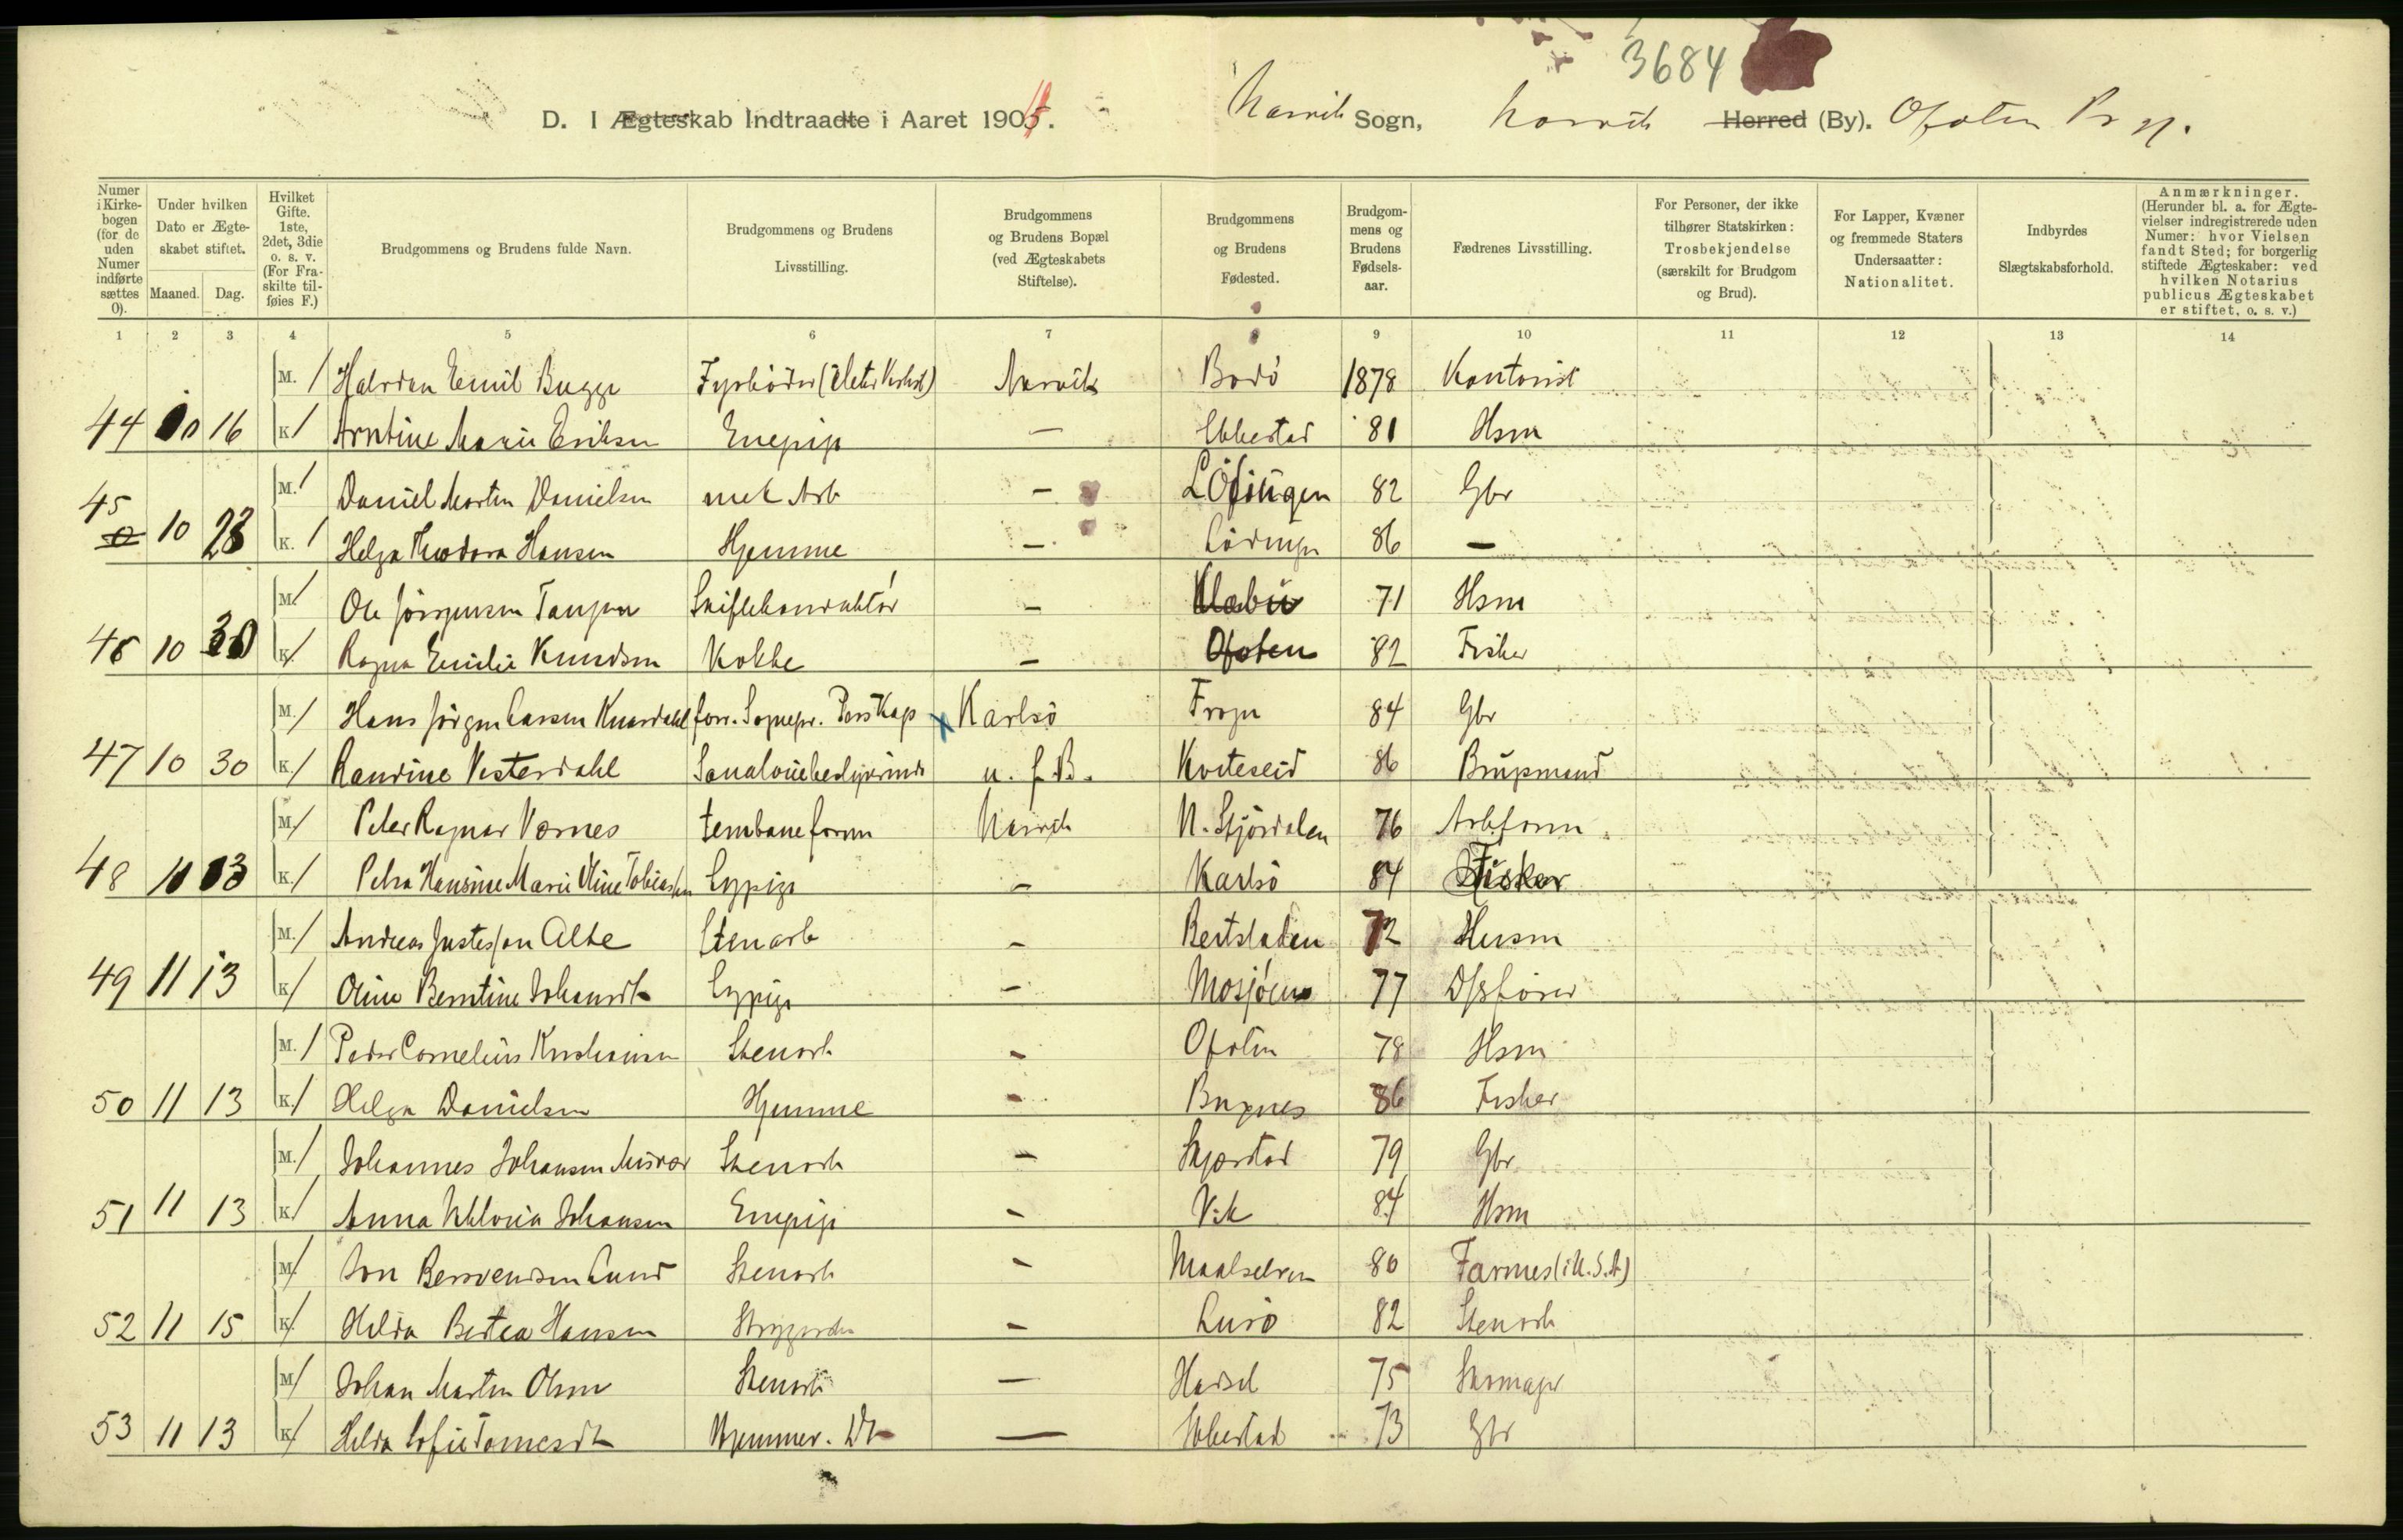 3684
D. I Ægteskab Indtraadte i Aaret 190 . Narvik Sogn, Narvik Herred (By). Ofoten
Numer i Kirkebogen (for de uden Numer indførte sættes 0).
Under hvilken Dato er Ægteskabet stiftet.
Maaned. Dag.
Hvilket Gifte. 1ste, 2det, 3die o. s. v. (For Fraskilte tilføies F.)
Brudgommens og Brudens fulde Navn.
Brudgommens og Brudens Livsstilling.
Brudgommens og Brudens Bopæl (ved Ægteskabets Stiftelse).
Brudgommens og Brudens Fødested.
Brudgommens og Brudens Fødselsaar.
Fædrenes Livsstilling.
For Personer, der ikke tilhører Statskirken: Trosbekjendelse (særskilt for Brudgom og Brud).
For Lapper, Kvæner og fremmede Staters Undersaatter: Nationalitet.
Indbyrdes Slægtskabsforhold.
Anmærkninger. (Herunder bl. a. for Ægtevielser indregistrerede uden Numer: hvor Vielsen fandt Sted; for borgerlig stiftede Ægteskaber: ved hvilken Notarius publicus Ægteskabet er stiftet, o. s. v.)
1 2 3 4 5 6 7 8 9 10 11 12 13 14
M. / Halvdan Emil Bugge Fyrbøder Narvik Bodö 1878 Kontorist
44 10 16 K / Arntine Marie Eriksen Enepige — Ibbestad 81 Hsm
M. / Daniel Martin Danielsen mek Arb — Lödingen 82 Gbr
45 10 23 K. / Helga Theodora Hansen Hjemme — Lödingen 86 —
M / Ole Jörgensen Skiftekonduktör — Klæbu 71 Hsm
46 10 30 K / Ragna Emilie Knudsen Kokke — Ofoten 82 Fisker
M / Hans Jörgen Larsen x Karlsö Frogn 84 Gbr
47 10 30 K. / Randine Vesterdahl u. f. B. Kviteseid 86 Brugsmand
M / Peder Ragnar Værnes Jernbaneform Narvik N. Stjördalen 76 Arbform.
48 11 K. / Petra Hansine Marie Oline Tobiassen Sypige — Karlsö 84 Fisker
M. / Andreas Stenarb — 72 Husm
49 11 13 K / Oline Berntine Johansdt Sypige — Mosjöen 77
M. / Peder Cornelius Kristiansen Stenarb — Ofoten 78 Hsm
50 11 13 K / Helga Danielsen Hjemme — Buxnes 86 Fisker
M. / Johannes Johansen Stenarb — Skjerstad 79 Gbr
51 11 13 K / Anna Viktoria Johansen Enepige — Vik 84 Hsm
M / Jon Bersvendsen Lund Stenarb — Maalselven 80 Farmer (i U.S.A)
52 11 15 K / Hilda Bertea Hansen — Lurö 82 Stenarb
M / Johan Martin Olsen Stenarb — Hadsel 75 Skomager
53 11 13 K / Hilda Sofie Tomesdt Hjemmev. Dt — Ibbestad 73 Gbr